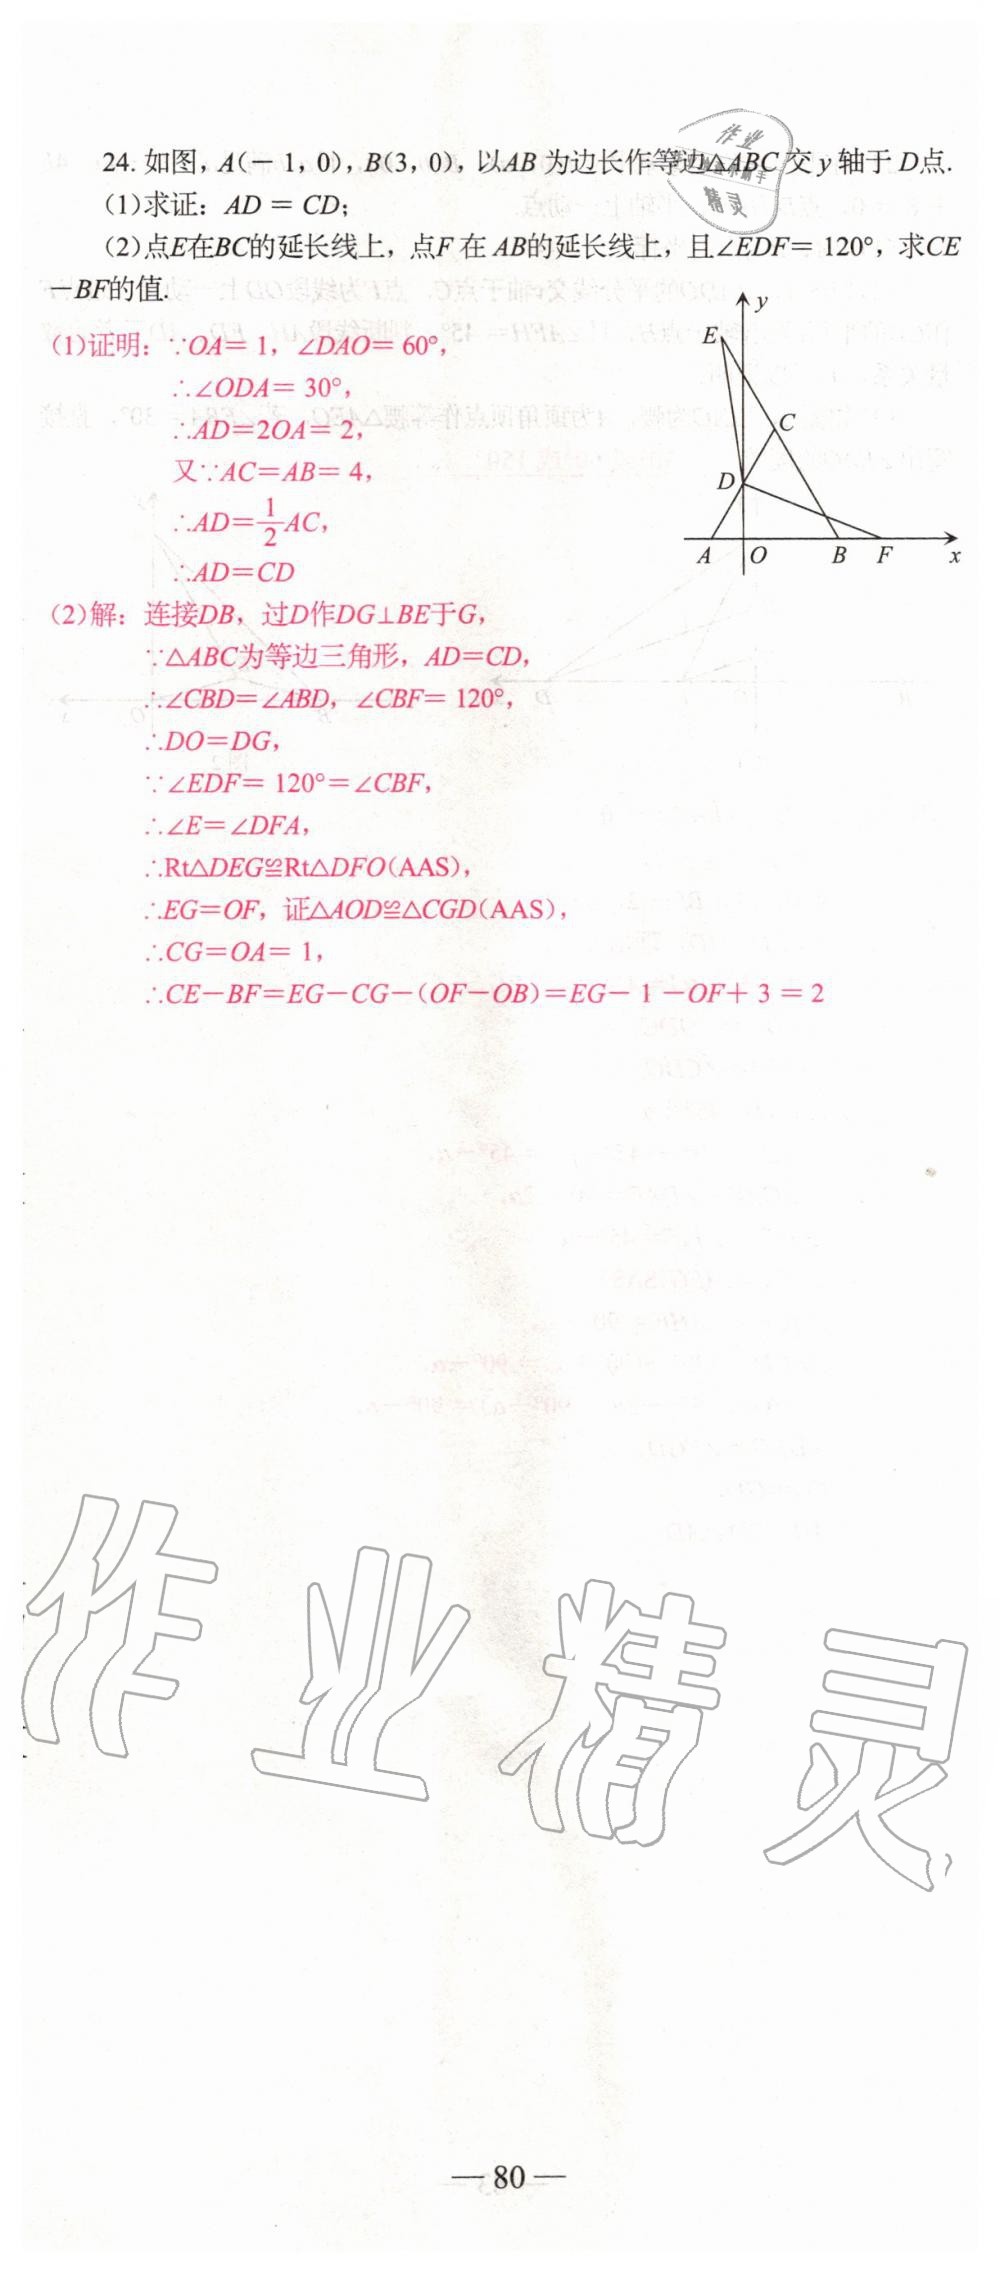 24. 如图，A(－1，0)，B(3，0)，以AB为边长作等边△ABC交y轴于D点.
(1)求证：AD＝CD；
(2)点E在BC的延长线上，点F在AB的延长线上，且∠EDF＝120°，求CE
－BF的值.
(1)证明：∵OA＝1，∠DAO＝60°，
∴∠ODA＝30°，
∴AD＝2OA＝2，
又∵AC＝AB＝4，
∴AD＝1/2AC，
∴AD＝CD
(2)解：连接DB，过D作DG⊥BE于G，
∵△ABC为等边三角形，AD＝CD，
∴∠CBD＝∠ABD，∠CBF＝120°，
∴DO＝DG，
∵∠EDF＝120°＝∠CBF，
∴∠E＝∠DFA，
∴Rt△DEG≌Rt△DFO(AAS)，
∴EG＝OF，证△AOD≌△CGD(AAS)，
∴CG＝OA＝1，
∴CE－BF＝EG－CG－(OF－OB)＝EG－1－OF＋3＝2
y
E
C
D
A O B F x
作业
精灵
作业精灵
—80—